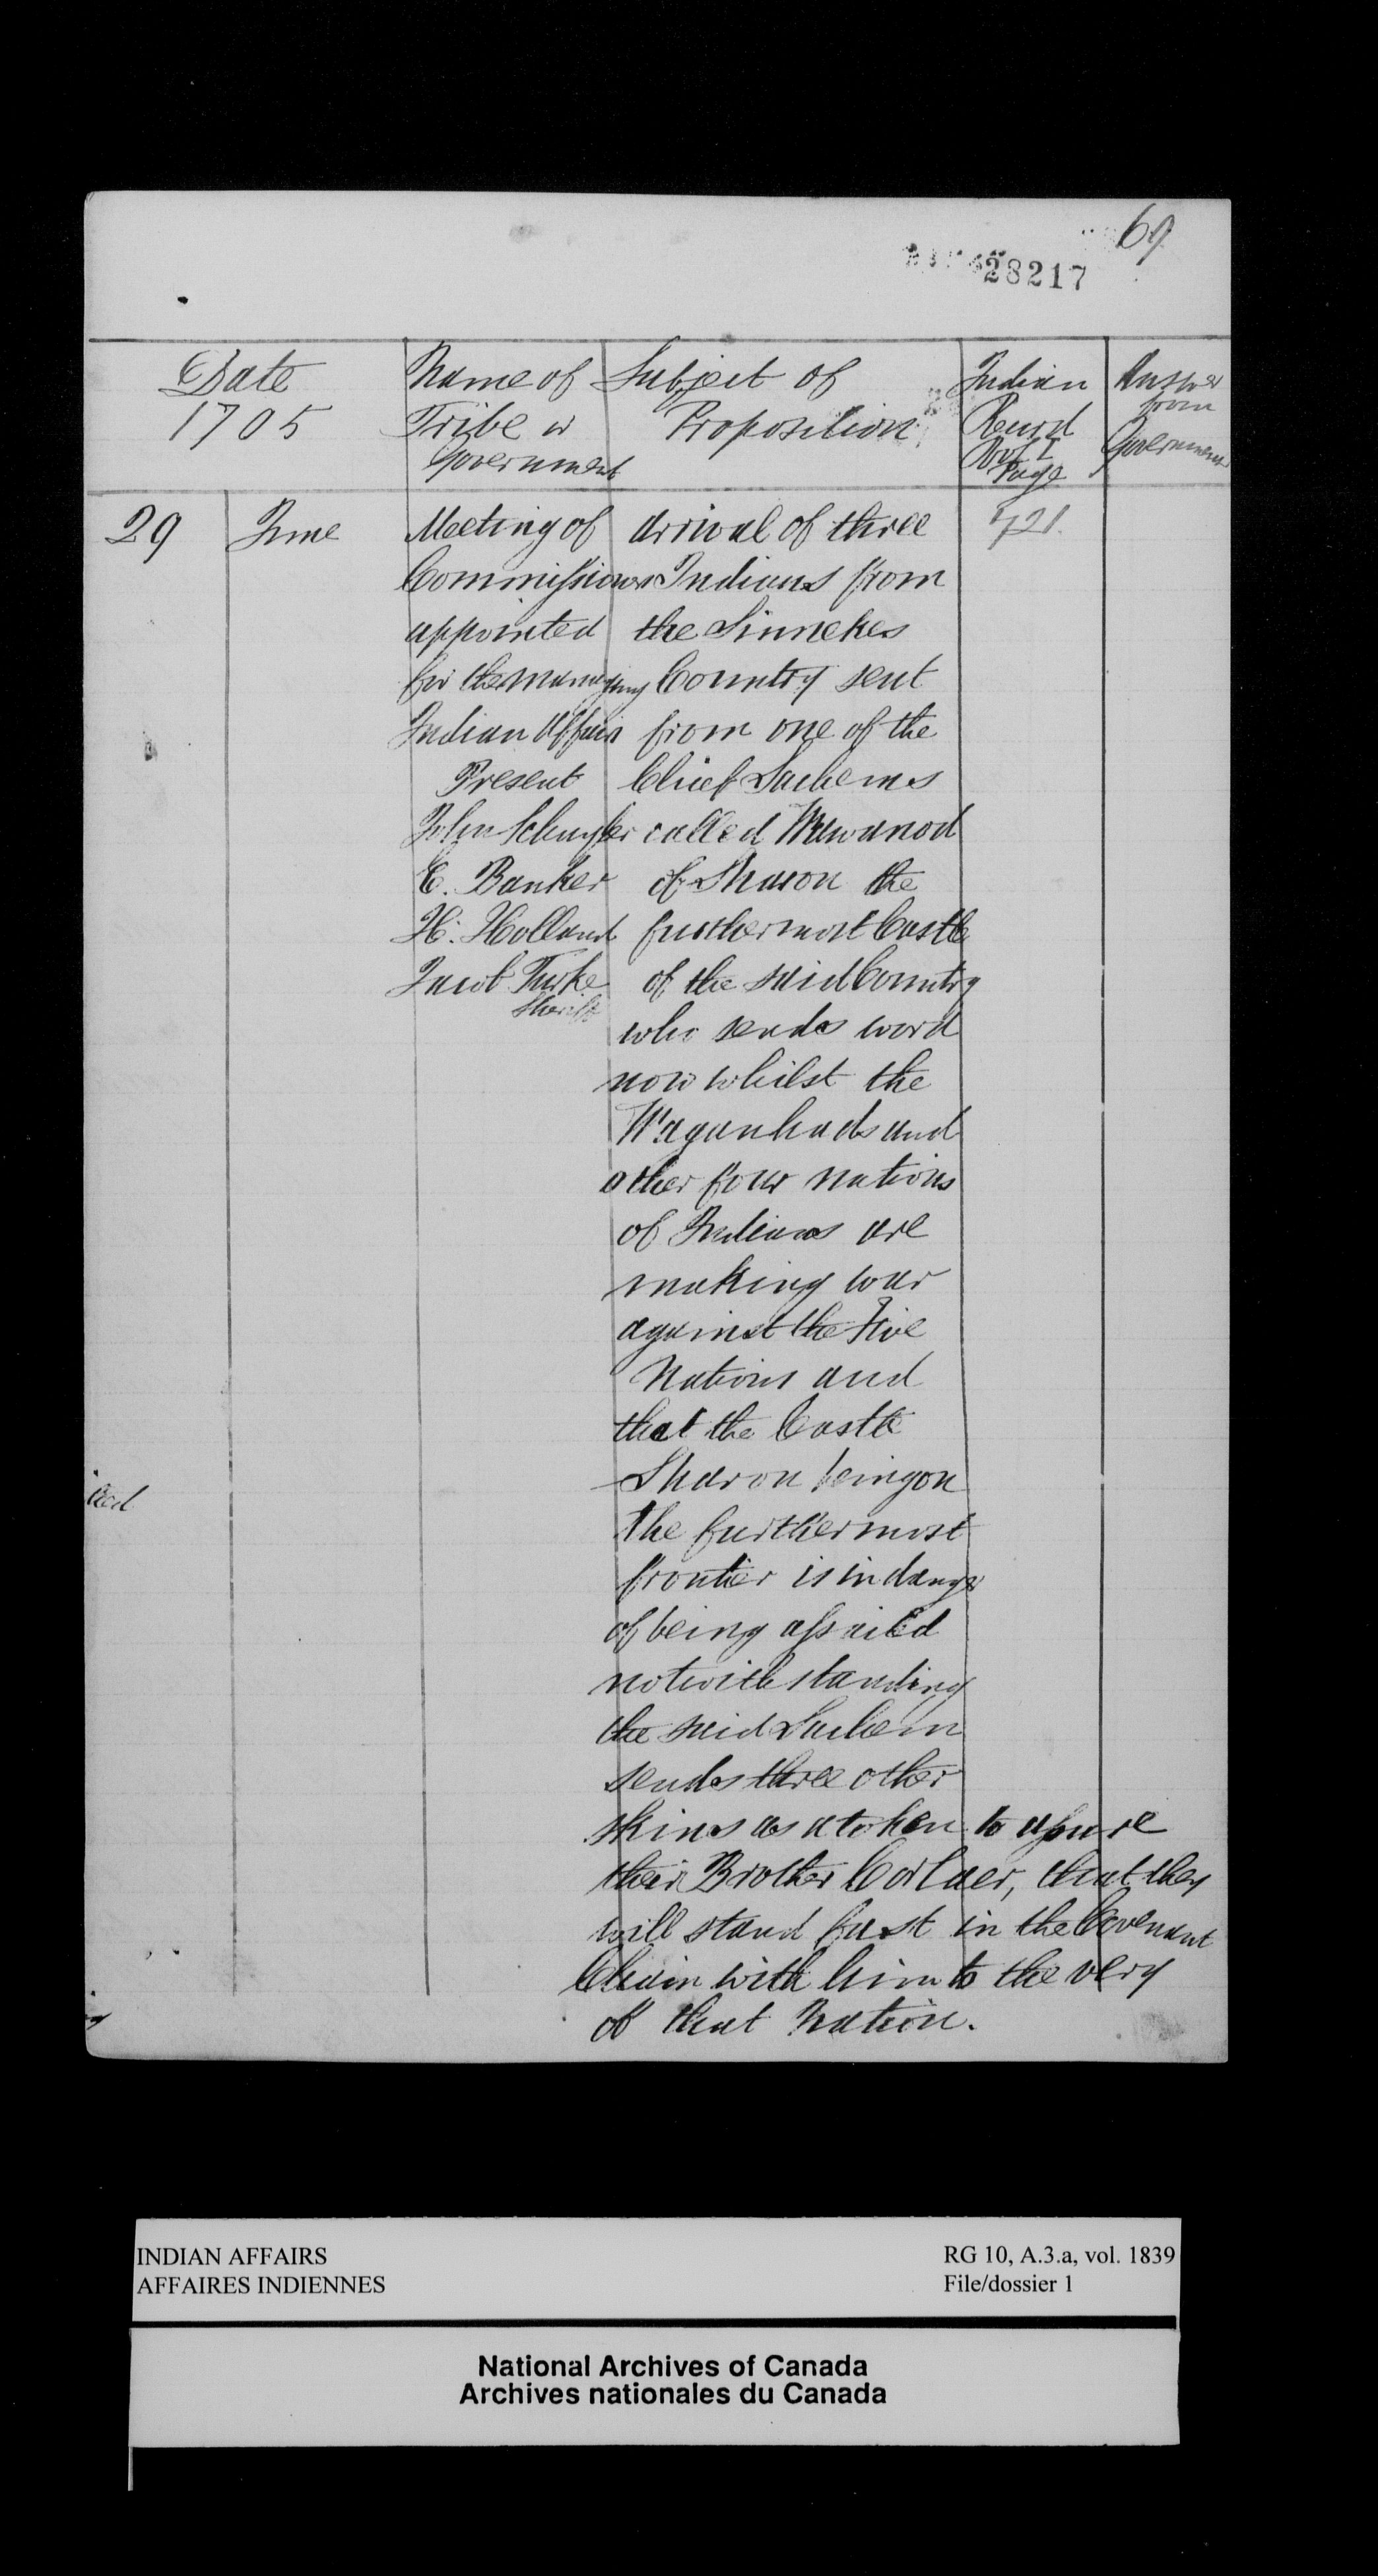 69
28217
Date
1705
Name of
Tribe or
Government
Subject of
Proposition
Indian
Record
Vol I
Page
Answer
from
Government
29 June
721.
Meeting of
Commissioners
appointed
for the managing
Indian Affairs
Present
John Schuyler
E. Banker
H. Holland
Jacob Turke
Sheriff
arrival of three
Indians from
the Sinnekes
Country sent
from one of the
Chief Sachems
called
of Sharon the
furthermost Castle
of the said Country
who sends word
now whilst the
Waganhads and
other four nations
of Indians are
making war
against the Five
Nations and
that the Castle
Sharon being on
the furthermost
frontier is in danger
of being assailed
notwithstanding
the said Sachem
sends three other
skins as a token to assure
their Brother Corlaer, that they
will stand fast in the Covenant
Chain with him to the very
of that Nation.
INDIAN AFFAIRS
AFFAIRES INDIENNES
RG 10, A.3.a, vol. 1839
File/dossier 1
National Archives of Canada
Archives nationales du Canada